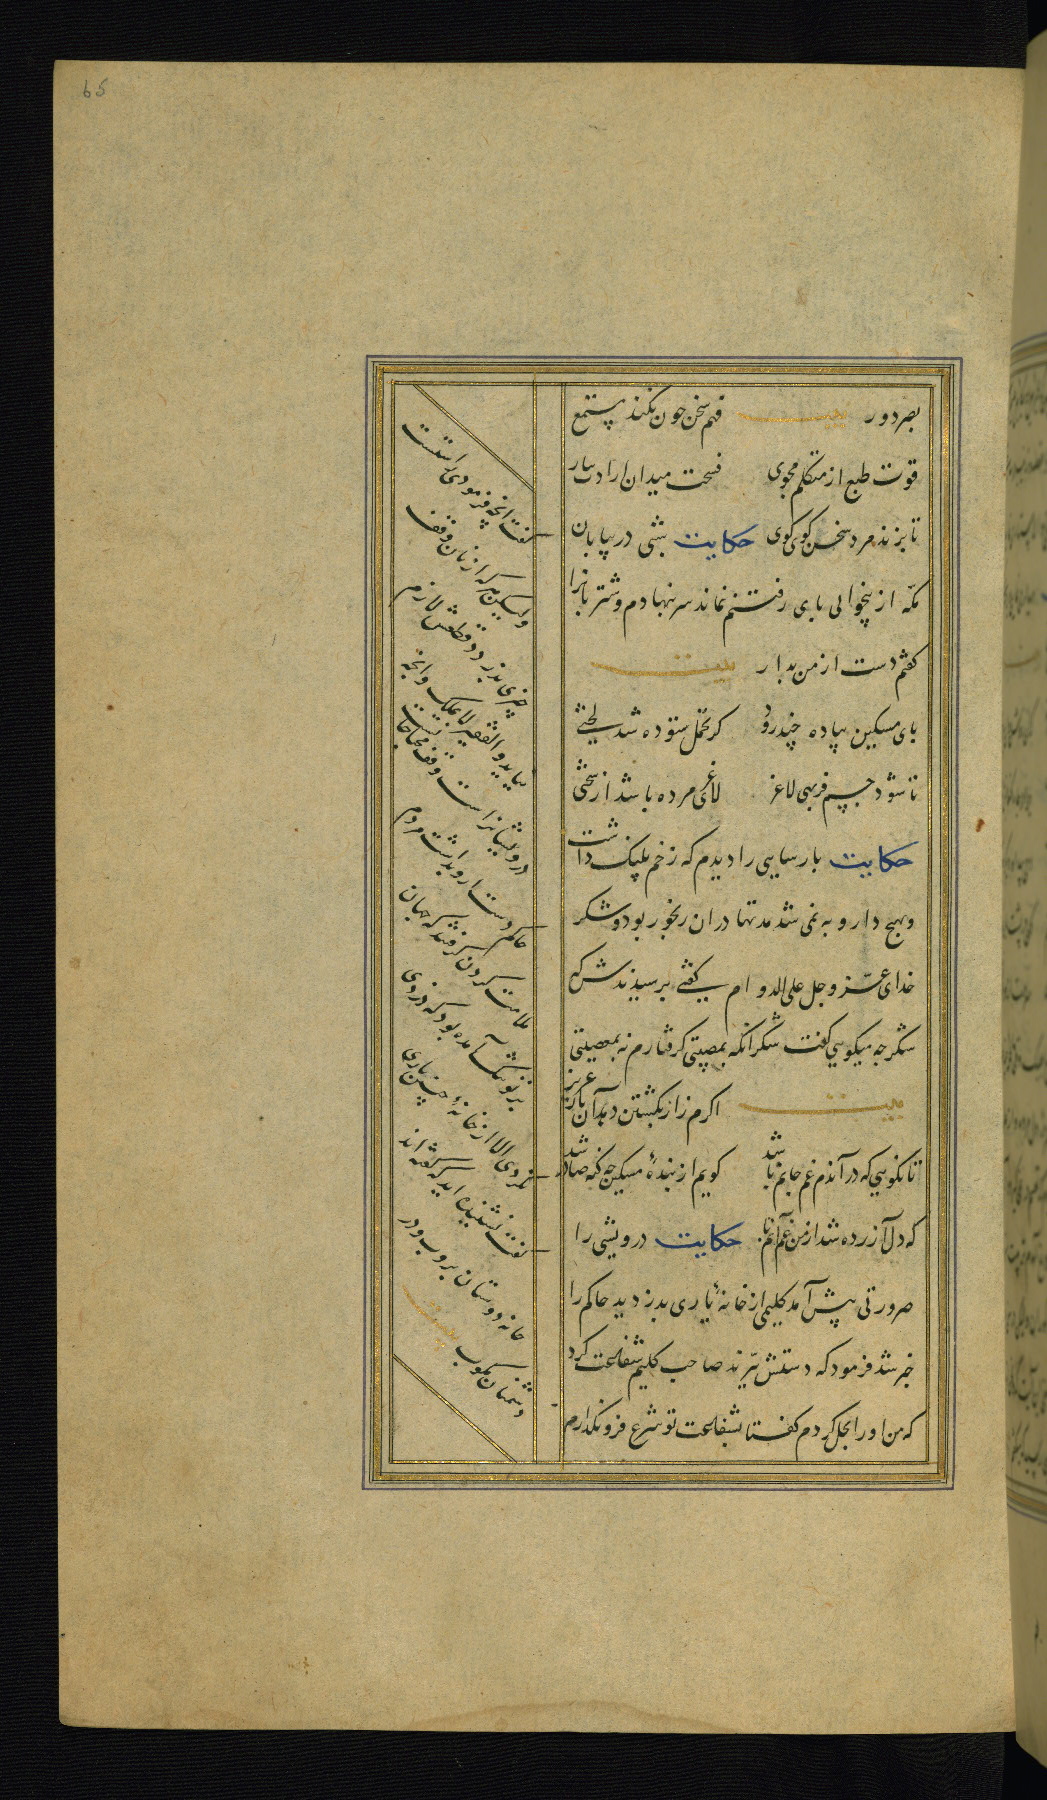 65
بصر دور بیت فهم سخن چون نکند مستمع
قوت طبع از متکلم مجوی فسحت میدان ارادت بیار
تا بزند مرد سخن کوی کوی حکایت شبی در بیابان
مکه از بیخوابی پای رفتنم نماند سر بنهادم و شتربانرا
کفتم دست از من بدار بیت
پای مسکین پیاده چند رود کز تحمل ستوده شد بختی
تا شود جسم فربهی لاغر لاغری مرده باشد از سختی
حکایت پارسایی را دیدم که زخم پلنک داشت
و بهیچ دارو به نمی شد مدتها در ان رنجور بود و شکر
خدای عز و جل علی الدوام کفتی پرسیدندش که
شکر چه میکویی کفت شکر آنکه بمصیبتی کرفتارم نه بمعصیتی
بیت اکرم زار بکشتن دهد آن یار عزیز
تا نکویی که در آندم غم جانم باشد کویم از بندهٔ مسکین چه کنه صادر شد
که دل آزرده شد از من غم آنم باشد حکایت درویشی را
ضرورتی پیش آمد کلیمی از خانهٔ یاری بدزدید حاکم را
خبر شد فرمود که دستش ببرند صاحب کلیم شفاعت کرد
که من اورا بحل کردم کفتا بشفاعت تو شرع فرو نکذارم
کفت انچه فرمودی راستست
ولیکن هر که از مال وقف
چیزی بدزدد قطعش لازم
نیاید والفقیر لا یملک و انچه
درویشانراست وقف محتاجانست
حاکم دست ازو بداشت مردم
ملامت کردن کرفتند که جهان
بر تو تنک آمده بود که دزدی
نکردی الا از خانهٔ چنین یاری
کفت نشنیدهٔ که کفته اند
خانه دوستان بروب و در
دشمنان مکوب بیت